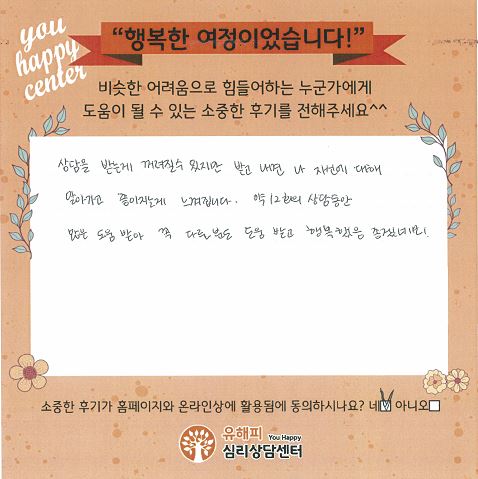 you
happy
center
“행복한 여정이었습니다!”
비슷한 어려움으로 힘들어하는 누군가에게
도움이 될 수 있는 소중한 후기를 전해주세요^^
상담을 받는게 꺼려질수 있지만 받고 나면 나 자신에 대해
알아가고 좋아지는게 느껴집니다. 약 12회의 상담동안
많은 도움 받아 꼭 다른 분도 도움 받고 행복했음 좋겠네요!
소중한 후기가 홈페이지와 온라인상에 활용됨에 동의하시나요? 네 아니오
유해피 You Happy
심리상담센터